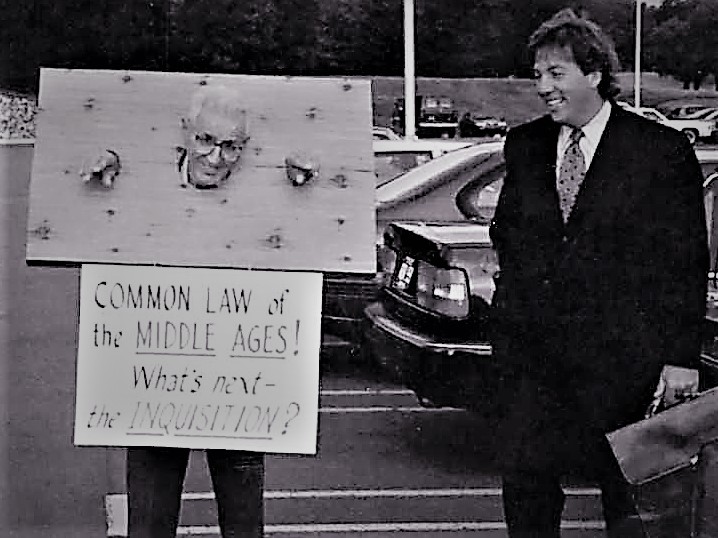 COMMON LAW of
the MIDDLE AGES!
What's next-
the INQUISITION?